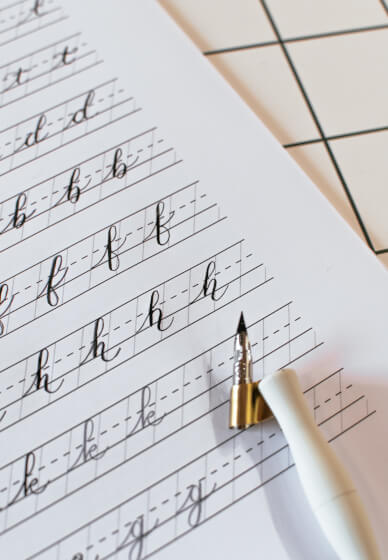 t
t t
d d
b b b
f f f f
h h h h
k k k k
g g g